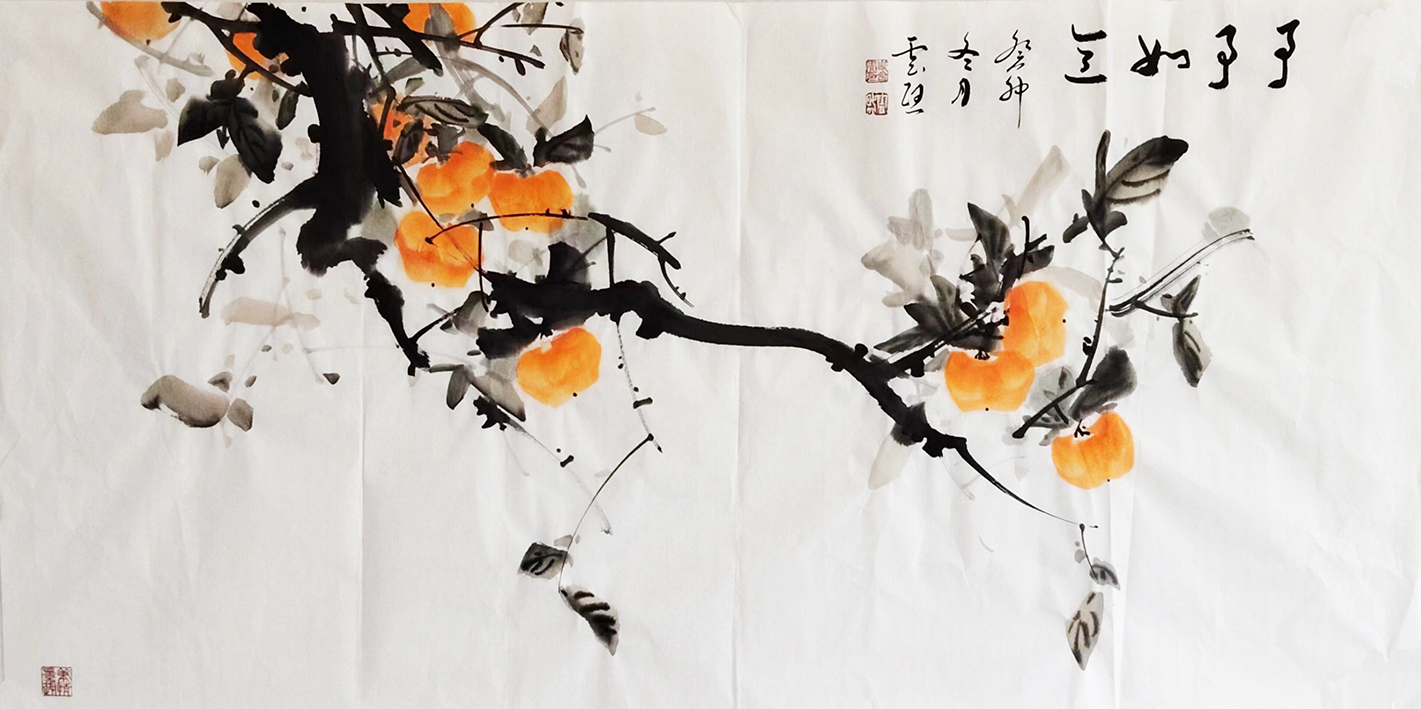 事事如意
癸卯
冬月
雲